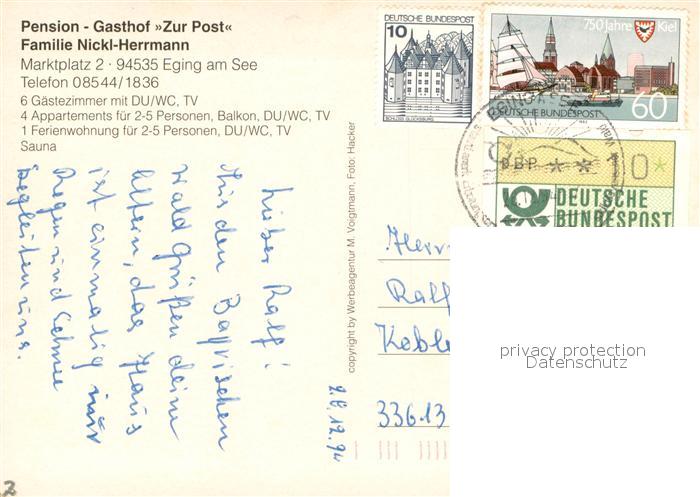 Pension - Gasthof »Zur Post«
Familie Nickl-Herrmann
Marktplatz 2 · 94535 Eging am See
Telefon 08544/1836
6 Gästezimmer mit DU/WC, TV
4 Appartements für 2-5 Personen, Balkon, DU/WC, TV
1 Ferienwohnung für 2-5 Personen, DU/WC, TV
Sauna
Lieber Ralf!
Aus den Bayrischen
Wald grüßen deine
Eltern, das Haus
ist einmalig nur
Regen und Schnee
begleiten uns.
copyright by Werbeagentur M. Voigtmann, Foto: Hacker
DEUTSCHE BUNDESPOST
10
SCHLOSS GLÜCKSBURG
750 Jahre Kiel
DEUTSCHE BUNDESPOST
60
DBP
0*
DEUTSCHE
BUNDESPOST
Herr
Ralf
33613
privacy protection
Datenschutz
2